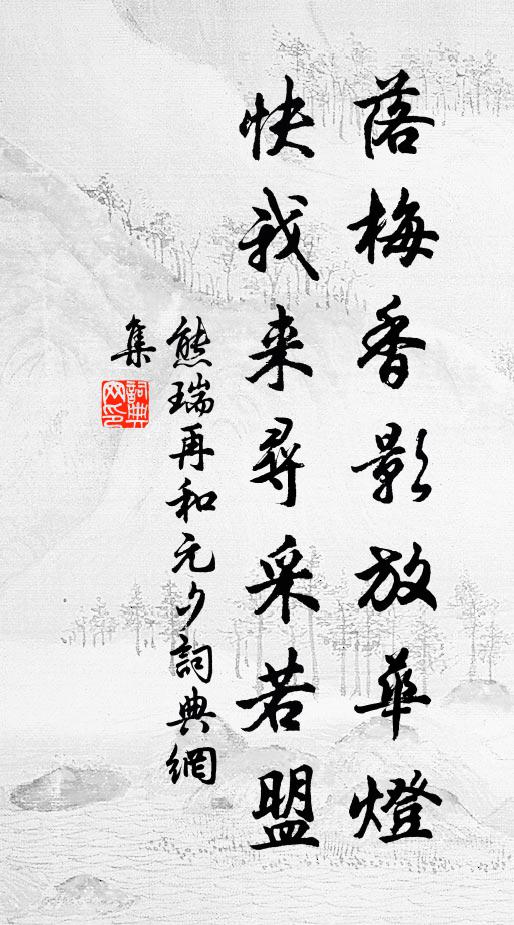 落梅香影放華燈
快我来尋采若盟
熊瑞再和元夕詞典網
集
詞典網印